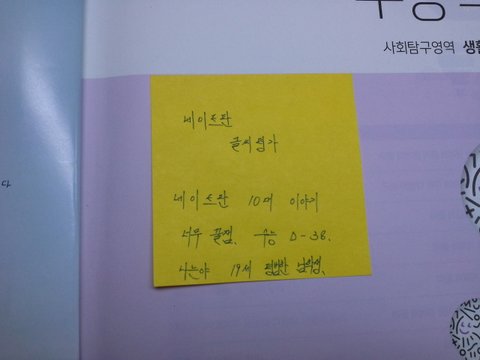 수능
사회탐구영역 생활
다
네이트판
글씨평가
네이트판 10대 이야기
너무 꿀잼. 수능 D-38.
나는야 19세 평범한 남학생.